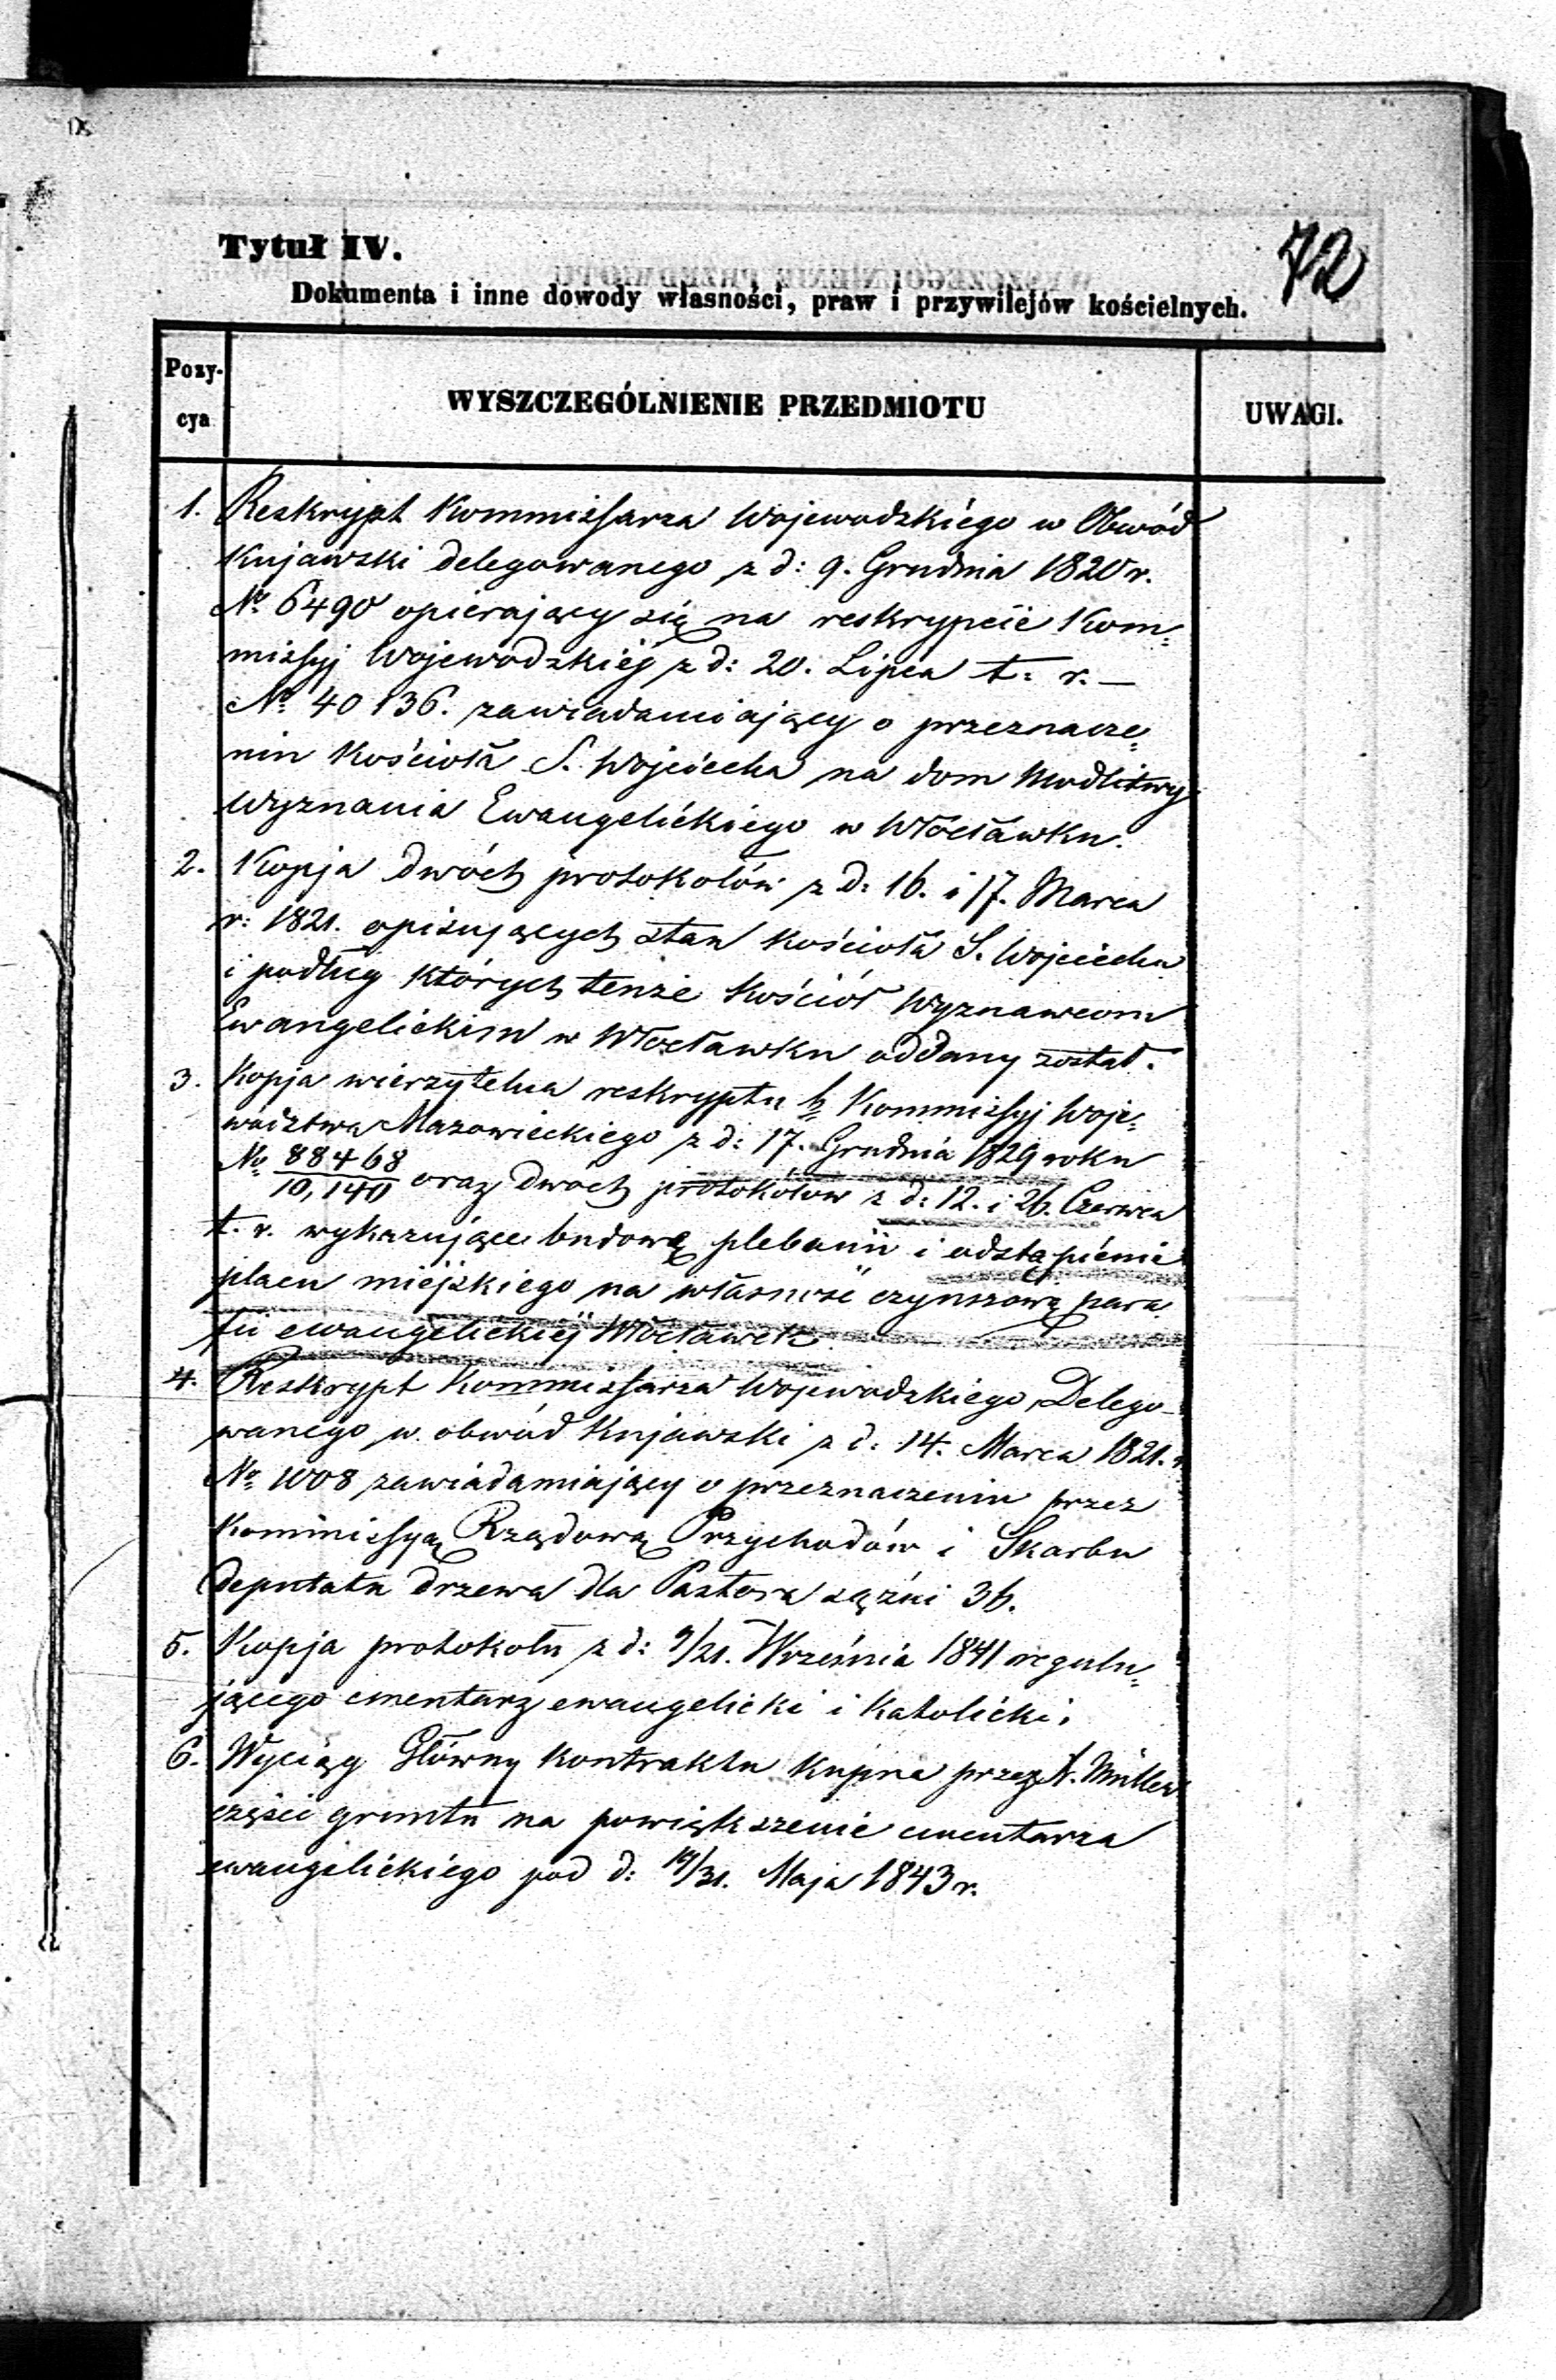 72
Tytuł IV.
Dokumenta i inne dowody własności, praw i przywilejów kościelnych.
Pozy-
cya
WYSZCZEGÓLNIENIE PRZEDMIOTU
UWAGI.
1. Reskrypt Kommissarza Wojewodzkiego w Obwód
Kujawski delegowanego z d: 9. Grudnia 1820 r.
No. 6490 opierający się na reskrypcie Kom=
missyj Wojewodzkiej z d: 20. Lipca t: r. —
No. 40136. zawiadamiający o przeznacze=
niu Kościoła S. Wojciecha na dom Modlitwy
Wyznania Ewangelickiego w Włocławku.
2. Kopja dwóch protokołów z d: 16. i 17. Marca
r: 1821. opisujących stan Kościoła S. Wojciecha
i podług których tenże Kościół Wyznawcom
Ewangelickim w Włocławku oddany został.
3. Kopja wierzytelna reskryptu b. Kommissyj Woje=
wództwa Mazowieckiego z d: 17. Grudnia 1829 roku
No. 88468/10,140 oraz dwóch protokołów z d: 12. i 26. Czerwca
t. r. wykazujące budowę plebanii i odstąpienie
placu miejskiego na własność czynszową para
fii ewangelickiej Włocławek.
4. Reskrypt Kommissarza Wojewodzkiego, Delego-
wanego w obwód Kujawski z d: 14. Marca 1821. r
No. 1008 zawiadamiający o przeznaczeniu przez
Kommissyą Rządową Przychodów i Skarbu
deputatu drzewa dla Pastora sążni 36.
5. Kopja protokołu z d: 9/21. Września 1841 regulu=
jącego cmentarz ewangelicki i Katolicki.
6. Wyciąg Główny Kontraktu Kupna przez A. Müller
części gruntu na powiększenie cmentarza
ewangelickiego pod d: 19/31. Maja 1843 r.